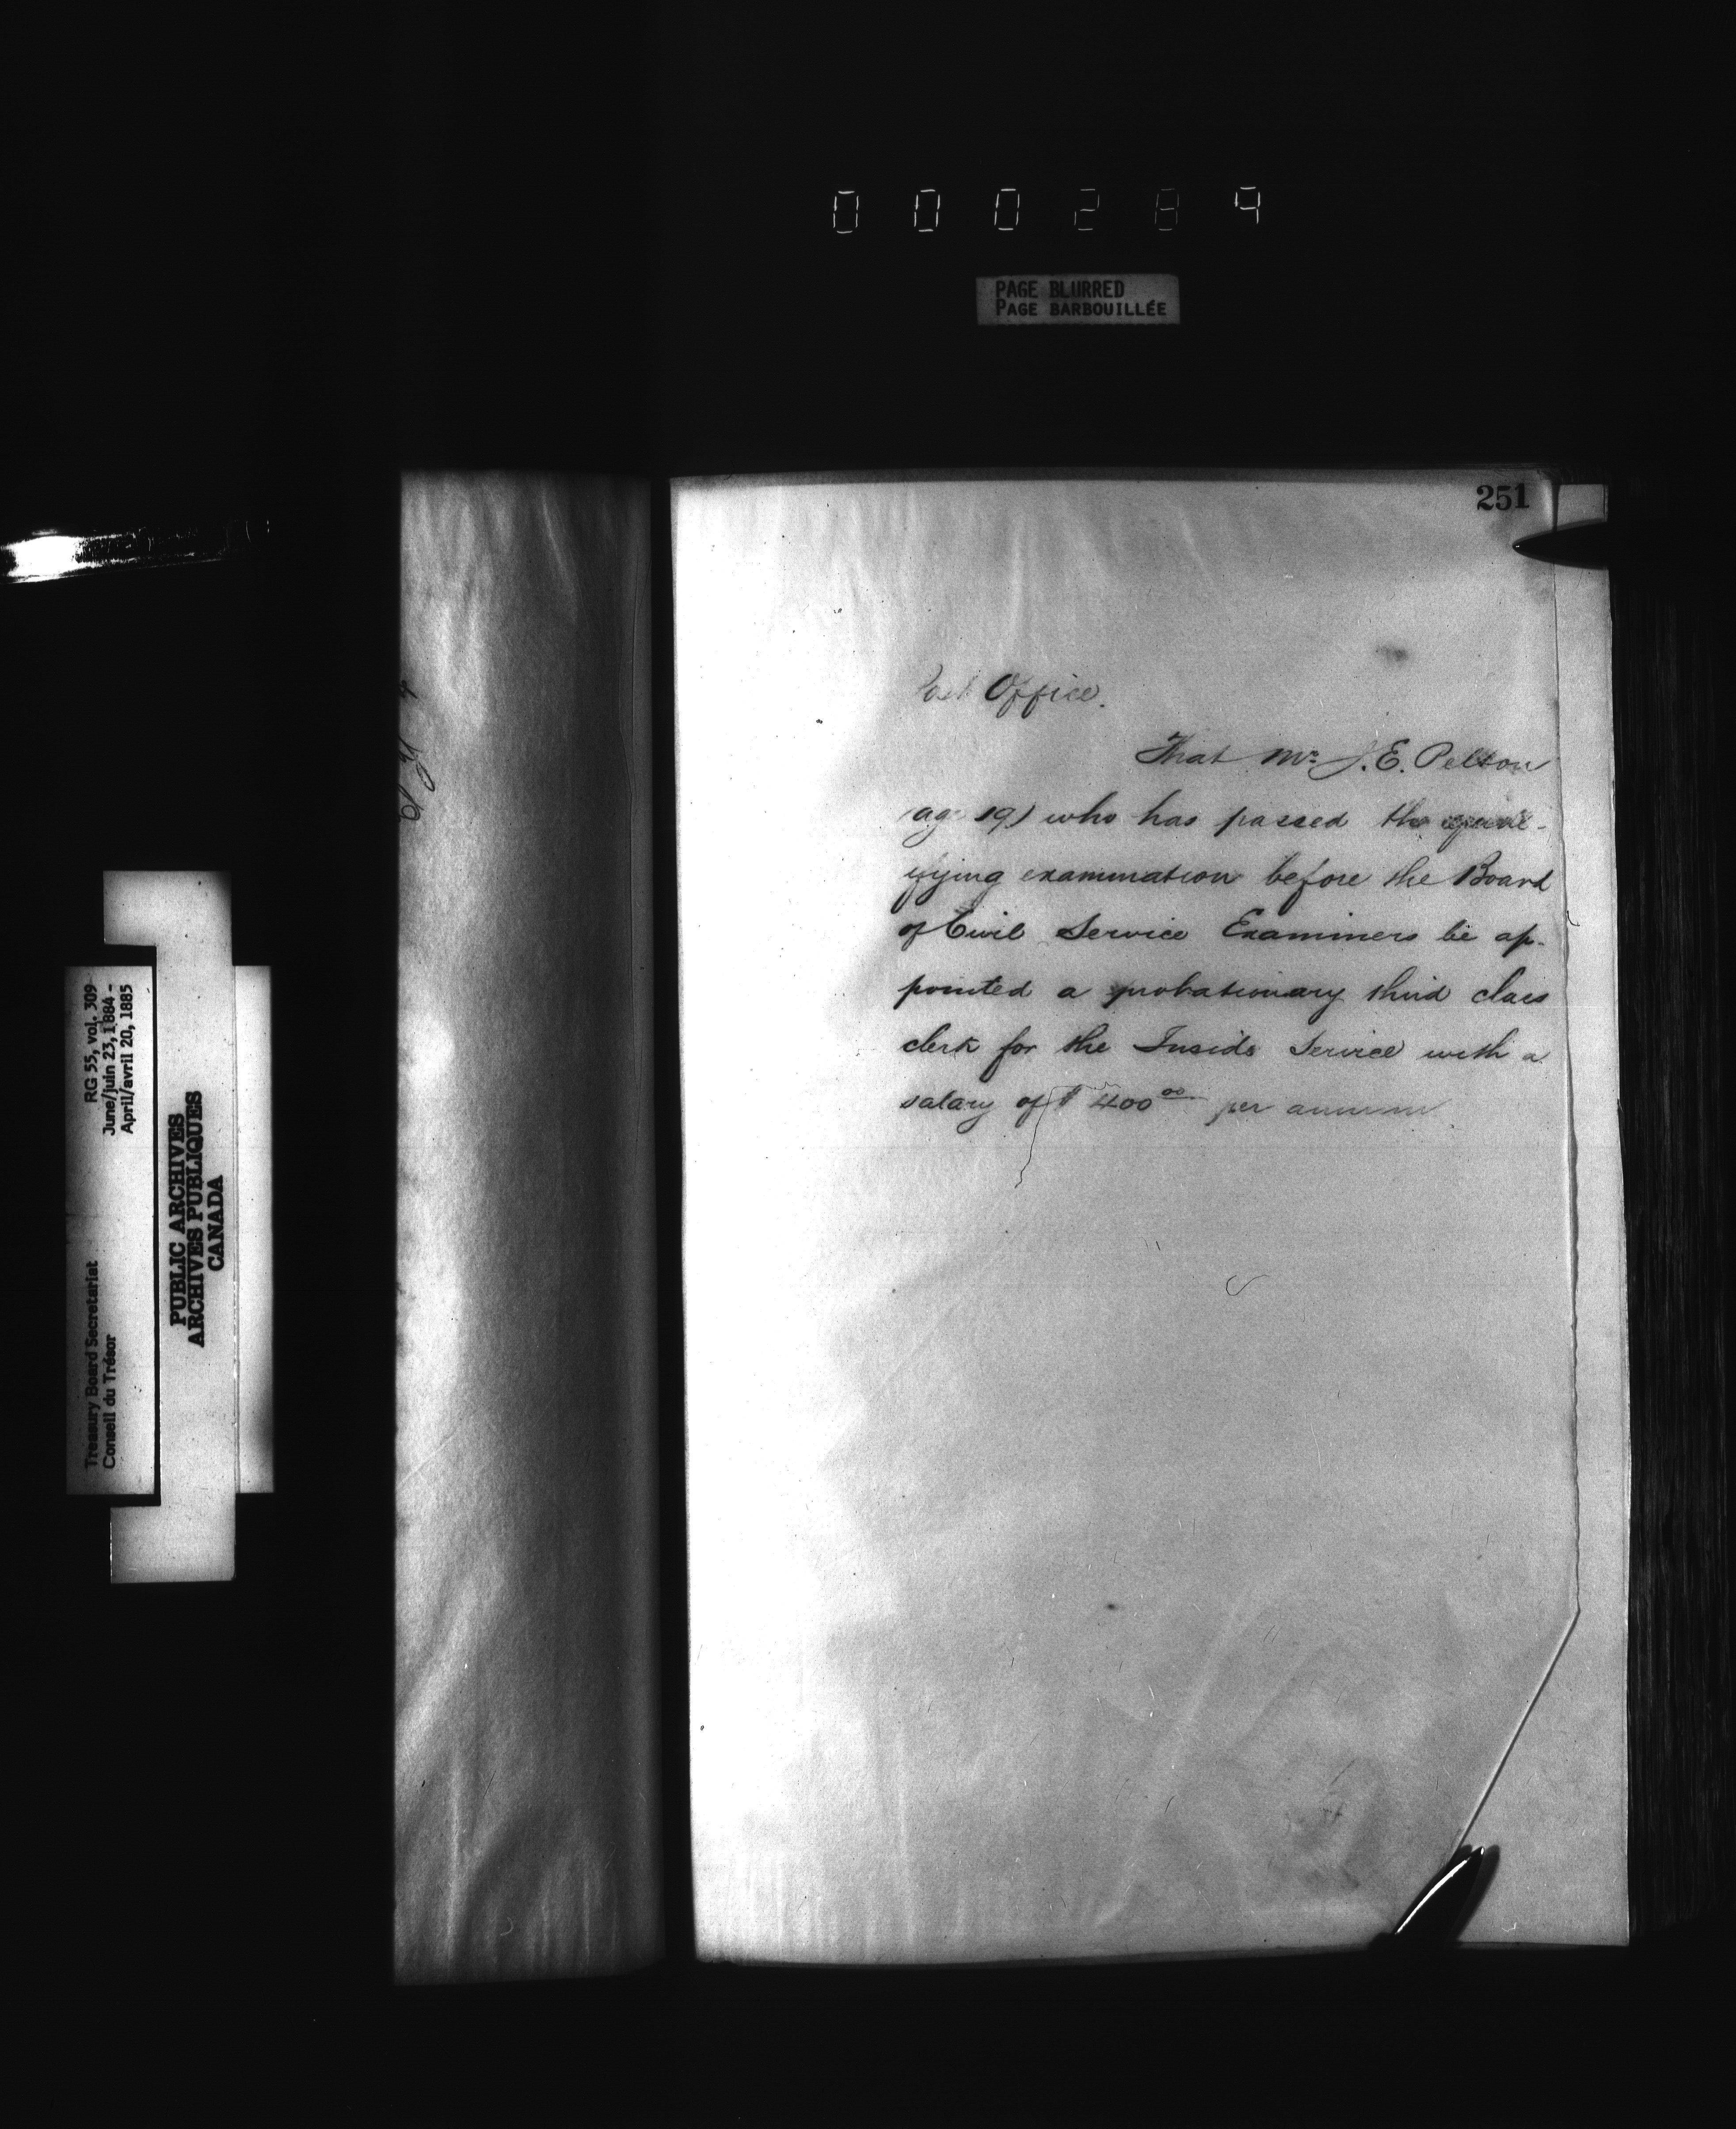 000289
PAGE BLURRED
PAGE BARBOUILLÉE
251
Post Office.
That Mr. J. E. Pelton
(age 19) who has passed the quali-
fying examination before the Board
of Civil Service Examiners be ap-
pointed a probationary third class
clerk for the Inside Service with a
salary of $400 00 per annum
RG 55, vol. 309
June/juin 23, 1884 -
April/avril 20, 1885
Treasury Board Secretariat
Conseil du Trésor
PUBLIC ARCHIVES
ARCHIVES PUBLIQUES
CANADA